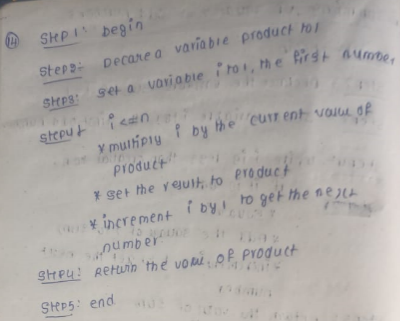 14 Step 1: begin
Step2:- Decare a variable product to 1
Step3: set a variable i to 1, the first number
Step4: i <= n
* multiply i by the current value of
product
* set the result, to product
* increment i by 1 to get the next
number
Step4: Return the value of product
Step5: end